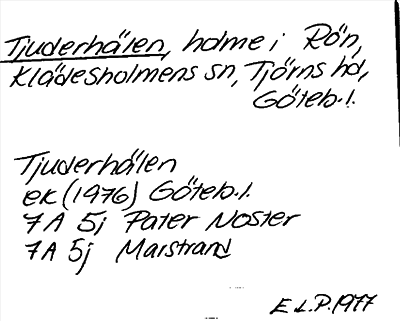 Tjuderhålen, holme i Rön,
Klädesholmens sn, Tjörns hd,
Göteb. l.
Tjuderhålen
ek (1976) Göteb. l.
7A 5j Pater Noster
7A 5j Marstrand
E.L.P. 1977